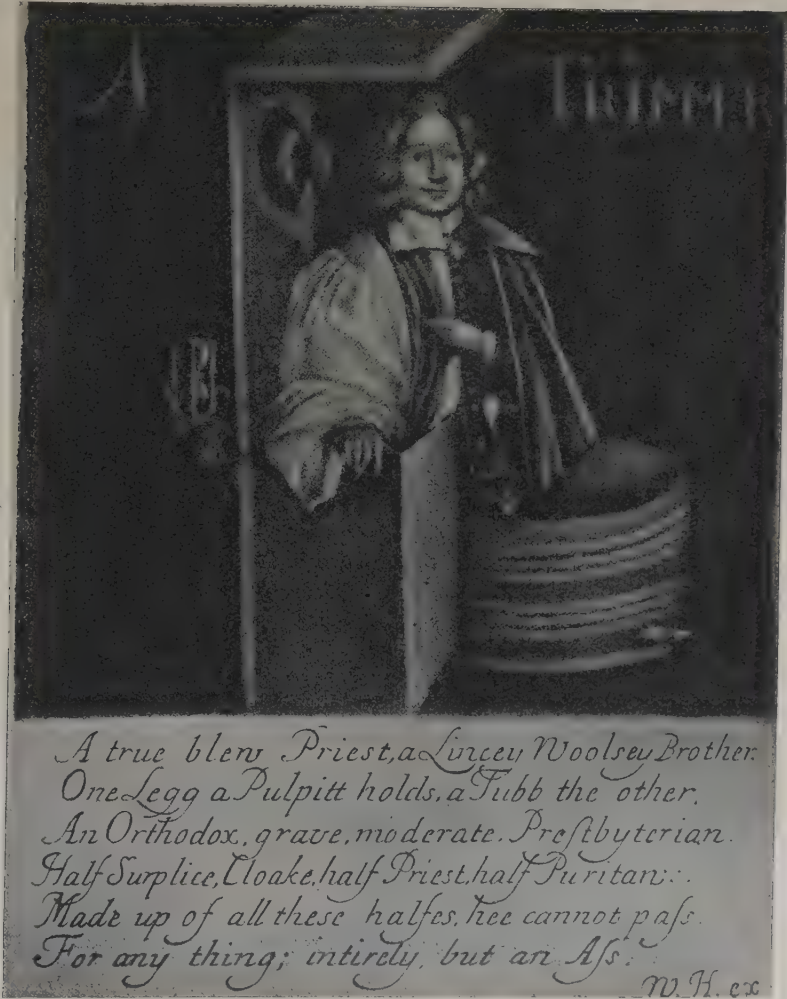 A TRIMME
A true blew Priest, a Lincey Woolsey Brother.
One Legg a Pulpitt holds, a Tubb the other,
An Orthodox, grave, moderate, Presbyterian.
Half Surplice, Cloake, half Priest, half Puritan:.
Made up of all these halfes, hee cannot pass
For any thing; intirely, but an Ass.
W. H. ex